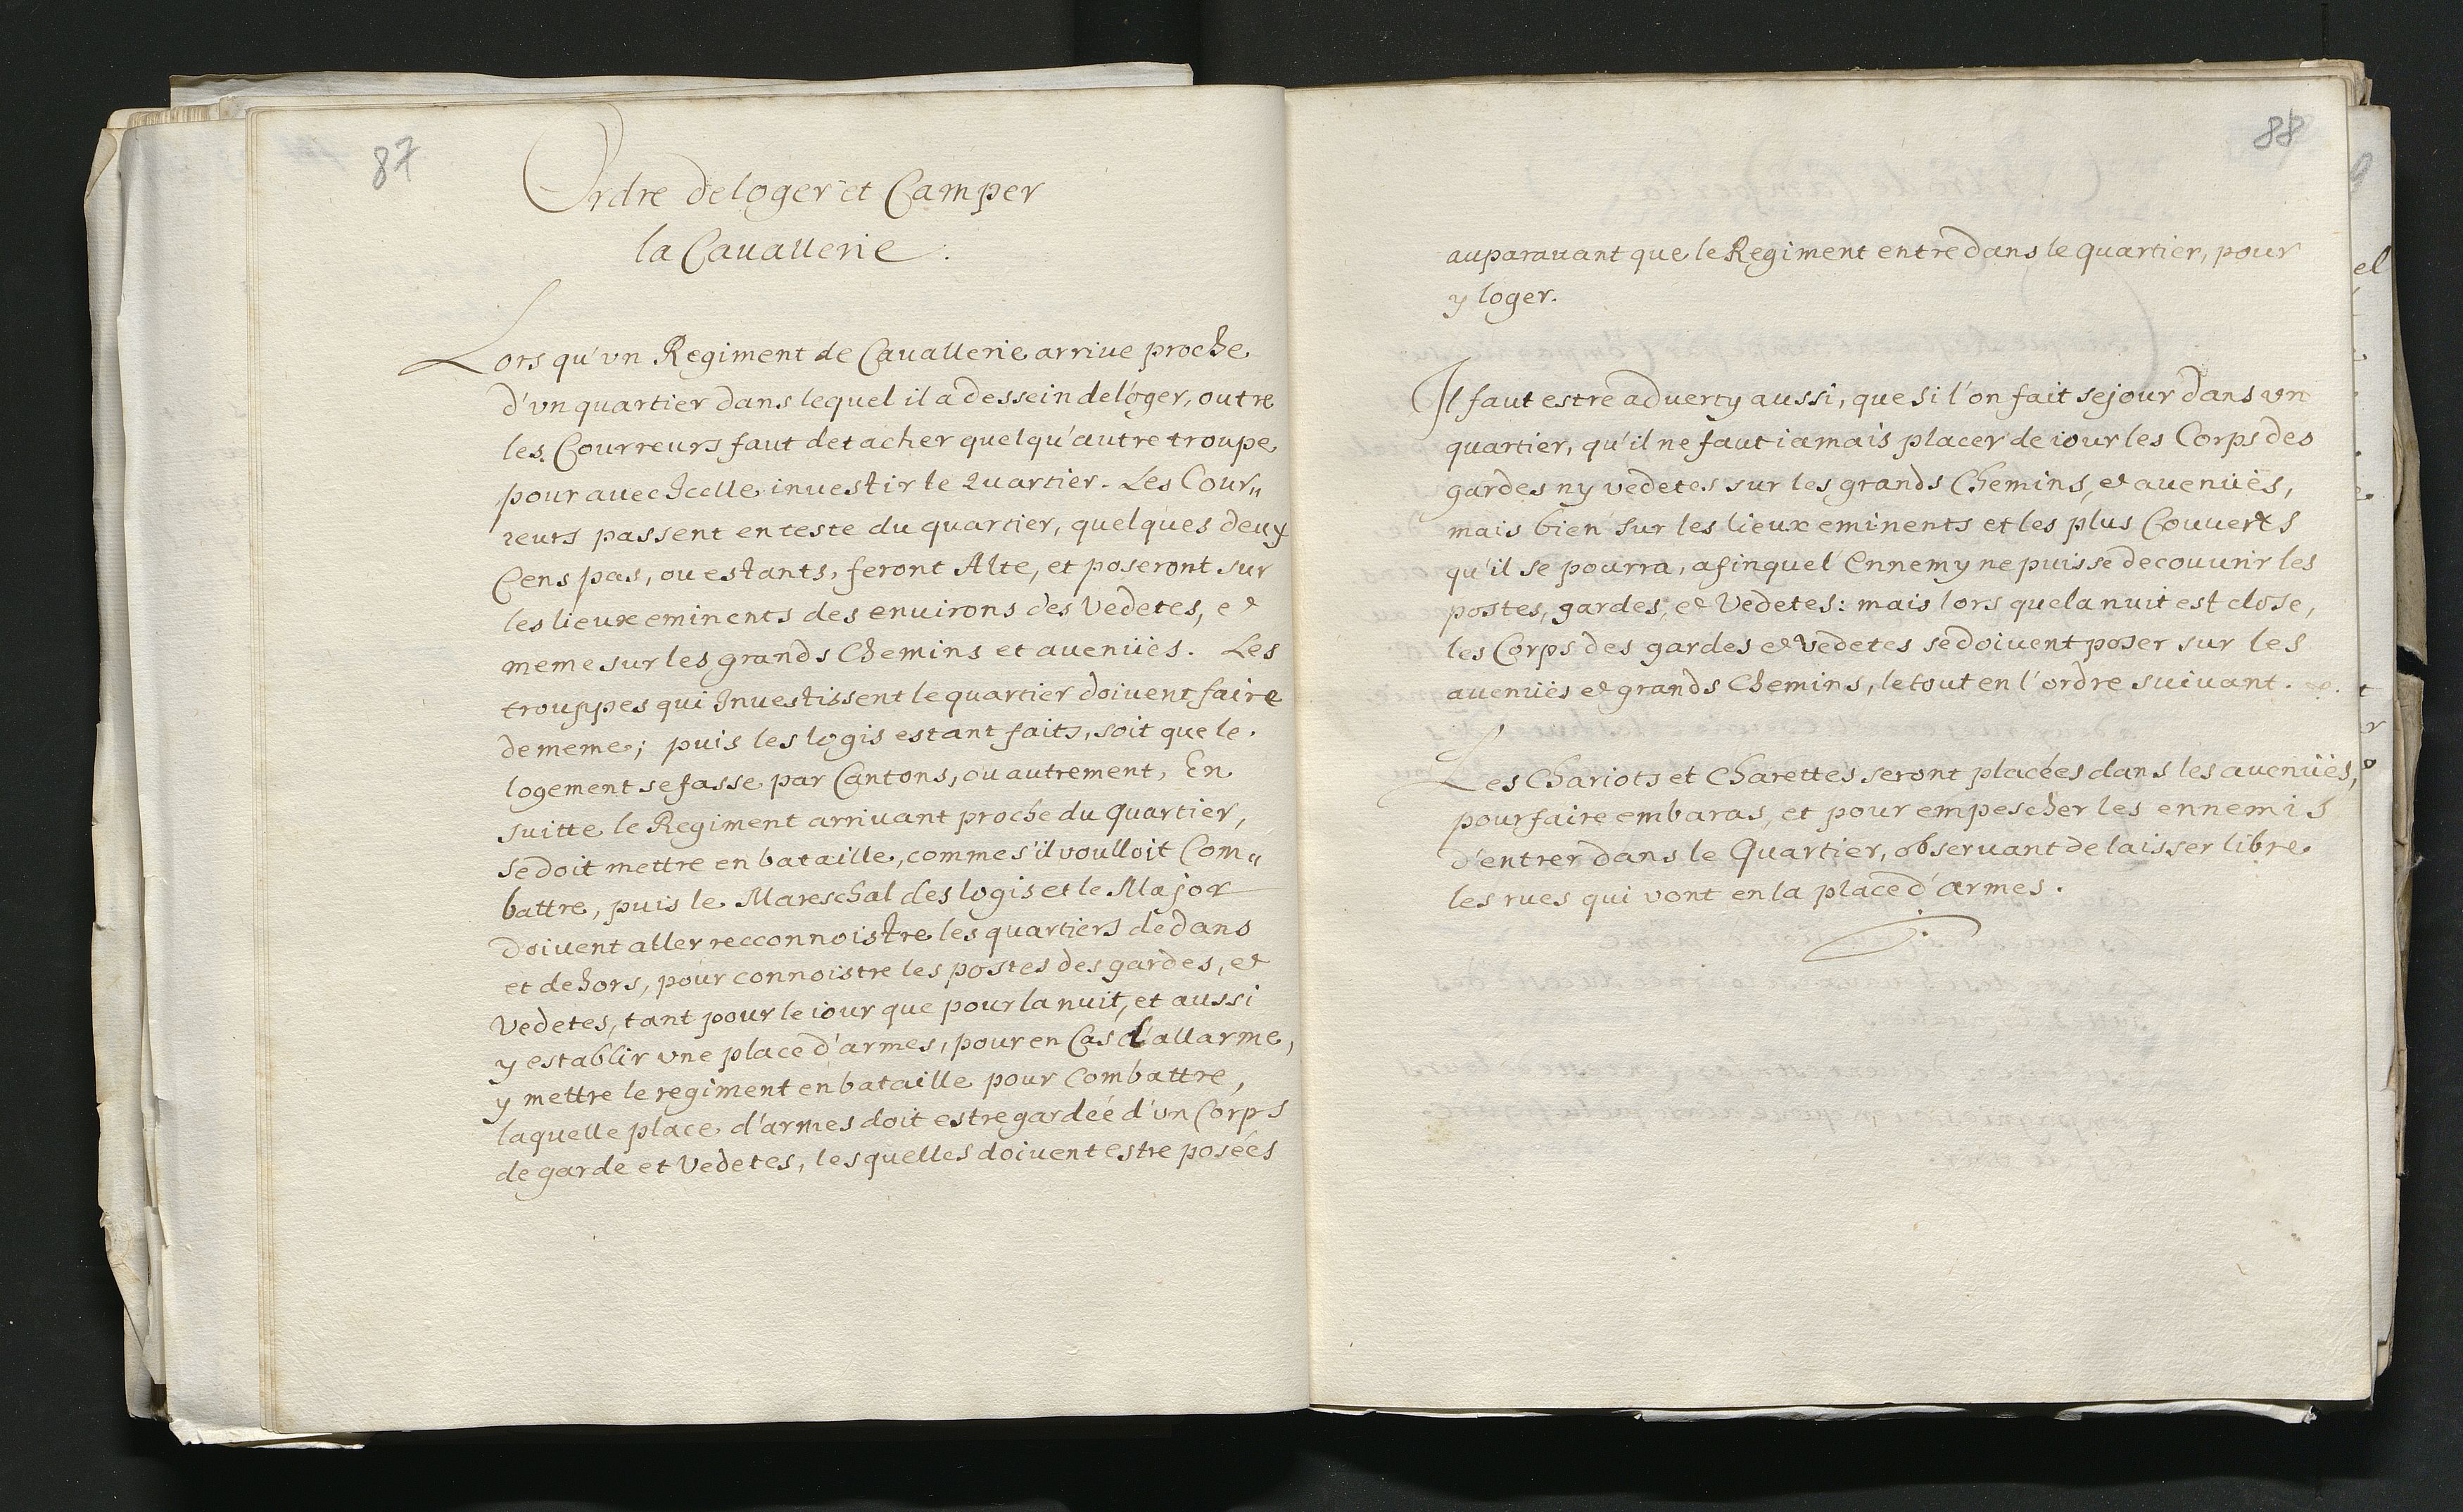 87
Ordre de loger et Camper
la Cauallerie.
Lors qu'vn Regiment de Cauallerie arriue proche
d'vn quartier dans lequel il a dessein de loger, outre
les Courreurs faut detacher quelqu'autre troupe
pour auec Jcelle inuestir le Quartier. Les Cour„
reurs passent en teste du quartier, quelques deux
Cens pas, ou estants, feront Alte, et poseront sur
les lieux eminents des enuirons des Vedetes, et
meme sur les grands Chemins et auenües. Les
trouppes qui Jnuestissent le quartier doiuent faire
de meme; puis les logis estant faits, soit que le
logement se fasse par Cantons, ou autrement, En
suitte le Regiment arriuant proche du Quartier,
se doit mettre en bataille, comme s'il voulloit Com„
battre, puis le Mareschal des logis et le Major
doiuent aller recconnoistre les quartiers dedans
et dehors, pour connoistre les postes des gardes, et
Vedetes, tant pour le iour que pour la nuit, et aussi
y establir vne place d'armes, pour en Cas d'allarme,
y mettre le regiment en bataille pour Combattre,
laquelle place d'armes doit estre gardée d'un Corps
de garde et Vedetes, lesquelles doiuent estre posées
88
auparauant que le Regiment entre dans le quartier, pour
y loger.
Jl faut estre aduerty aussi, que si l'on fait sejour dans vn
quartier, qu'il ne faut iamais placer de iour les Corps des
gardes ny vedetes sur les grands Chemins, et auenües,
mais bien sur les lieux eminents et les plus Couuerts
qu'il se pourra, afin que l'Ennemy ne puisse decouurir les
postes, gardes, et Vedetes: mais lors que la nuit est close,
les Corps des gardes et Vedetes se doiuent poser sur les
auenües et grands Chemins, le tout en l'ordre suiuant.
Les Chariots et Charettes seront placées dans les auenües,
pour faire embaras, et pour empescher les ennemis
d'entrer dans le Quartier, obseruant de laisser libre
les rues qui vont en la place d'armes.